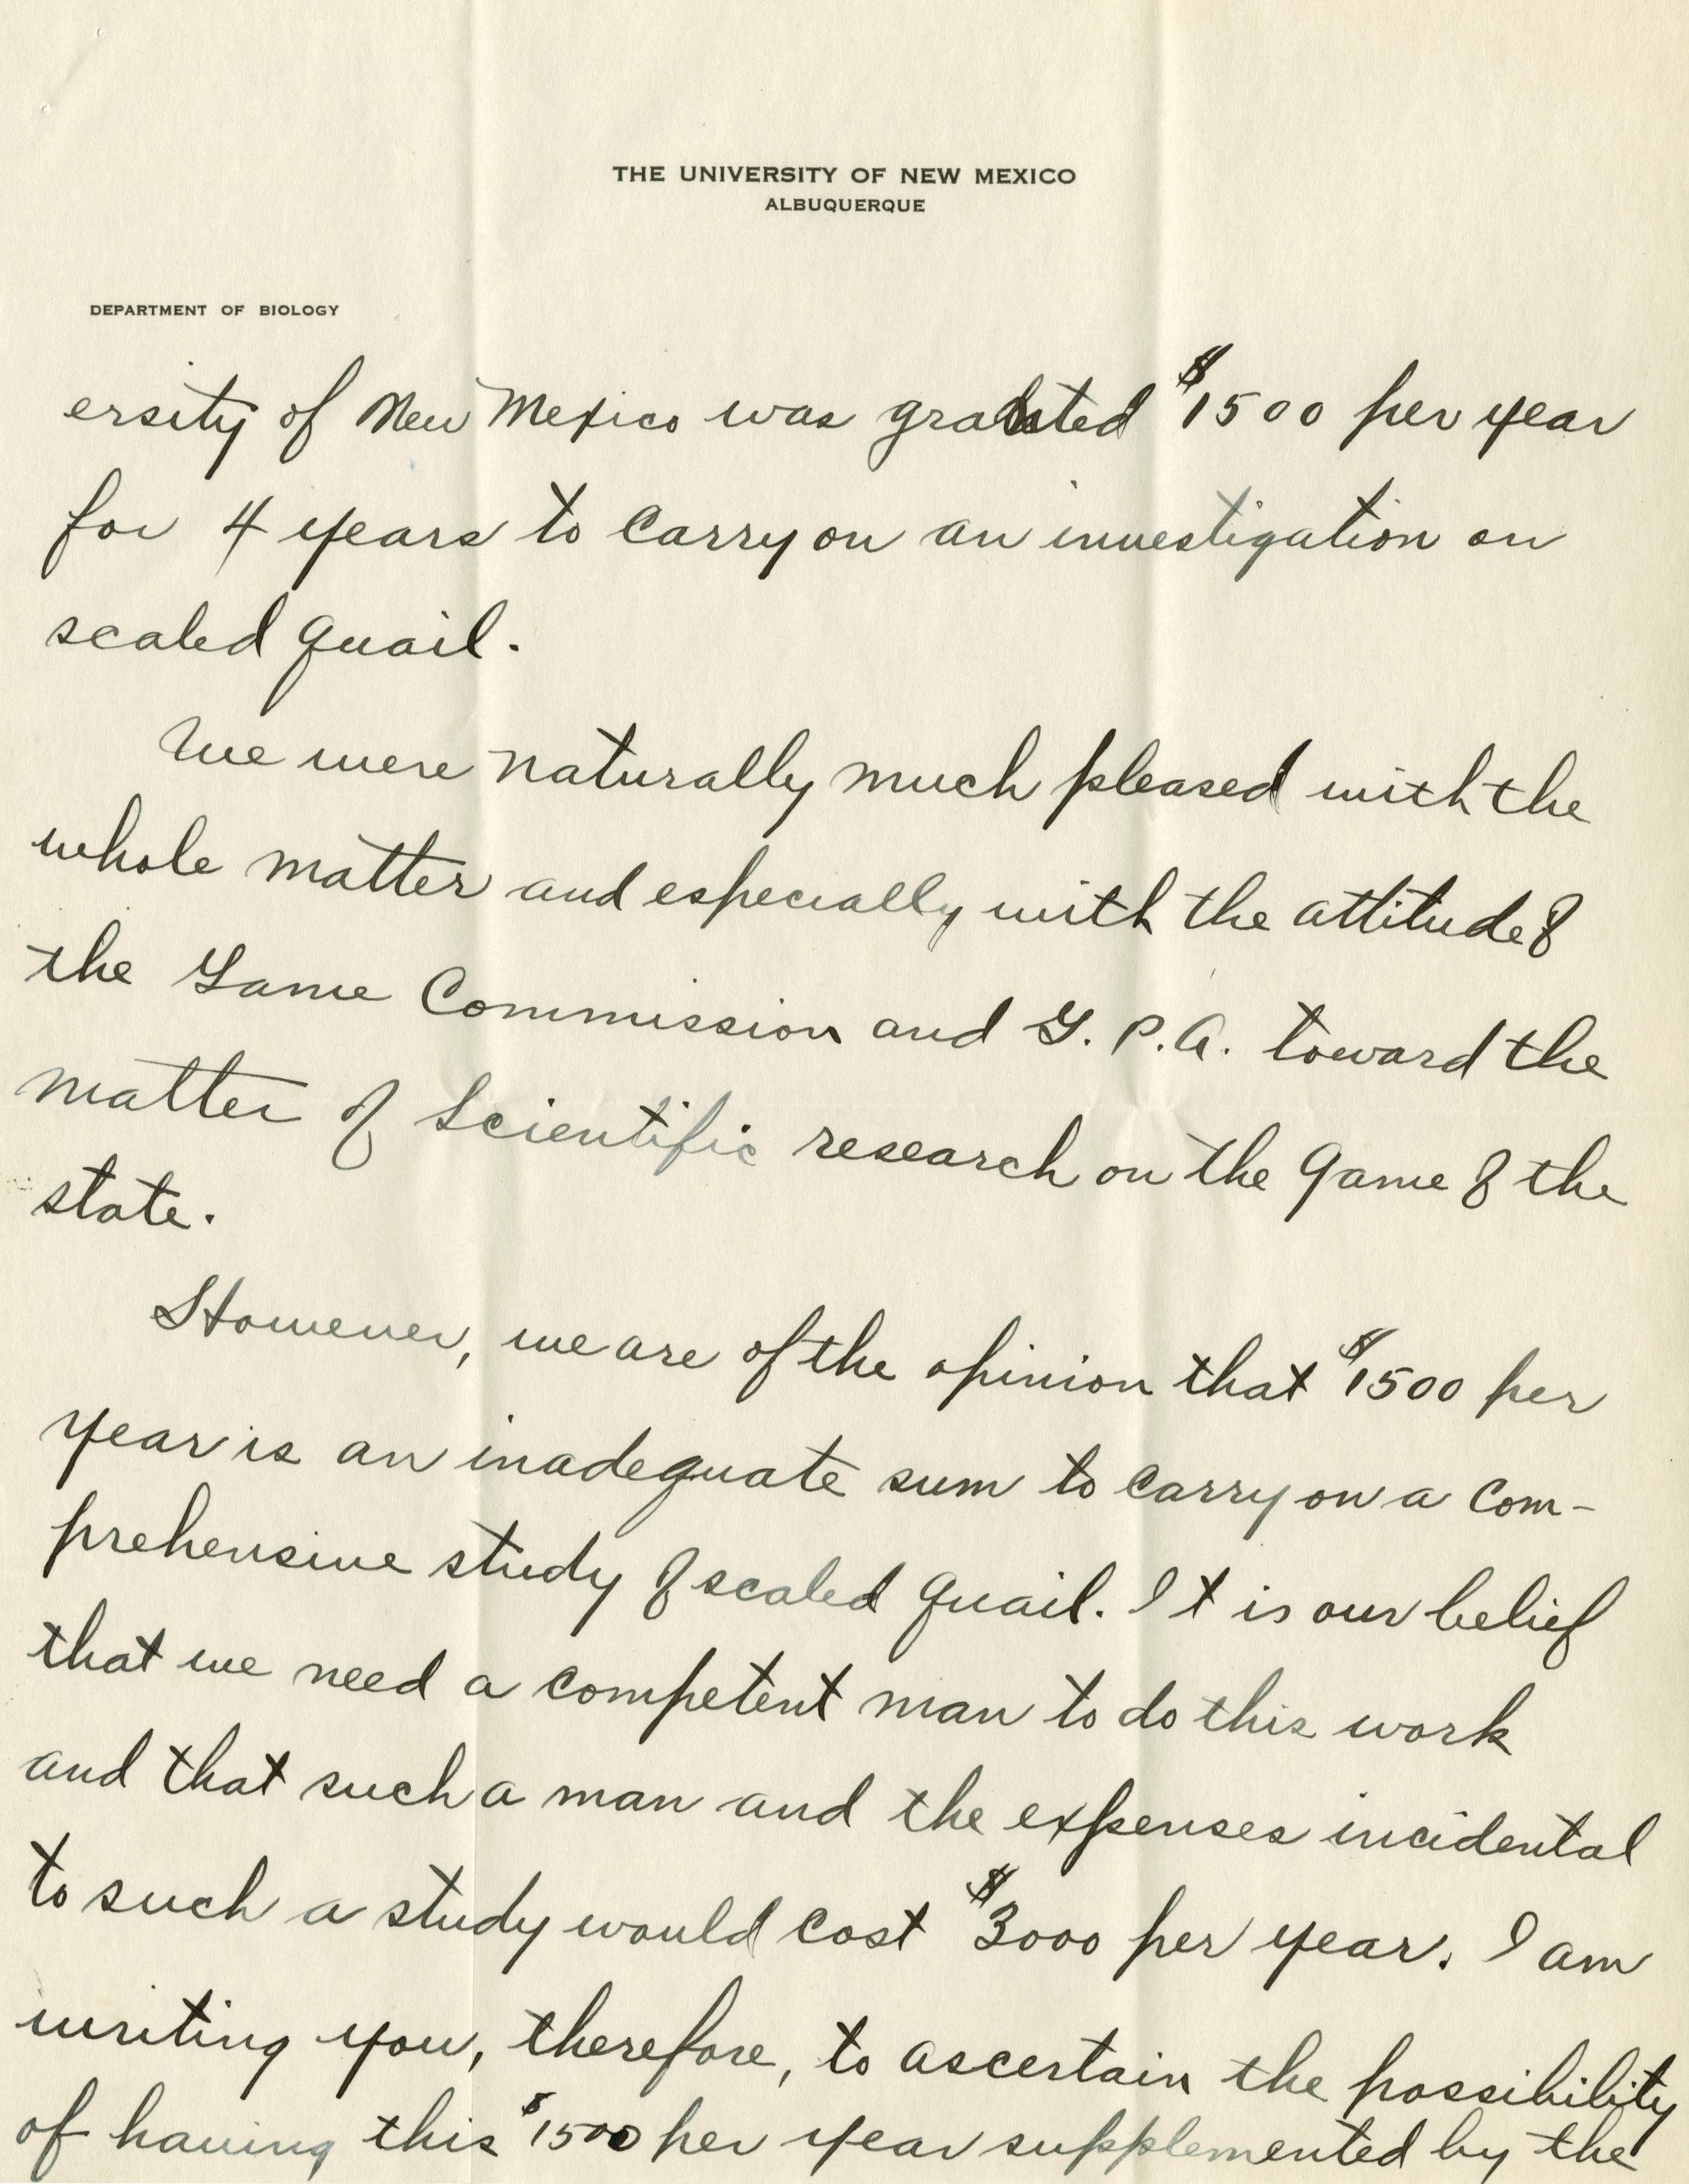 THE UNIVERSITY OF NEW MEXICO
ALBUQUERQUE
DEPARTMENT OF BIOLOGY
ersity of New Mexico was granted $1500 per year
for 4 years to carry on an investigation on
scaled quail.
We were naturally much pleased with the
whole matter and especially with the attitude of
the Game Commission and G. P. A. toward the
matter of scientific research on the game of the
state.
However, we are of the opinion that $1500 per
year is an inadequate sum to carry on a com-
prehensive study of scaled quail. It is our belief
that we need a competent man to do this work
and that such a man and the expenses incidental
to such a study would cost $3000 per year. I am
writing you, therefore, to ascertain the possibility
of having this $1500 per year supplemented by the